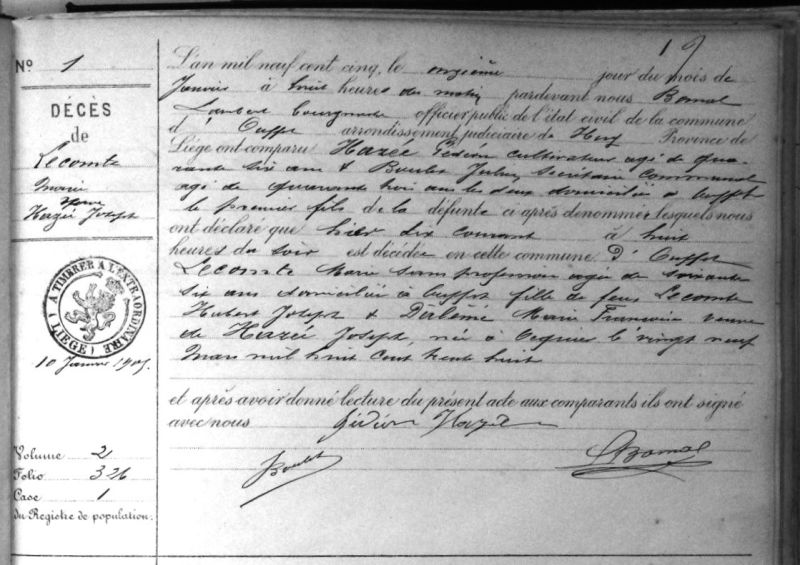 19
Nº 1
DÉCÈS
de
Lecomte
Marie
Hazée Joseph
A TIMBRER A L'EXTRAORDINAIRE
(LIÈGE)
10 Janvier 1905
Volume 2
Folio 326
Case 1
du Registre de population.
L'an mil neuf cent cinq, le onzième jour du mois de
Janvier à huit heures du matin pardevant nous Bomal
Lambert Bourgmestre officier public de l'état civil de la commune
d' Ouffet arrondissement judiciaire de Huy Province de
Liége ont comparu Hazée Gédéon cultivateur agé de qua-
rante six ans & Boulet Jules, Secrétaire Communal
agé de quarante trois ans les deux domiciliés à Ouffet
le premier fils de la défunte ci après dénommée lesquels nous
ont déclaré que hier dix courant à huit
heures du soir est décédée en cette commune D' Ouffet
Lecomte Marie sans profession agée de soixante
six ans domiciliée à Ouffet fille de feus Lecomte
Hubert Joseph & Marie Françoise veuve
de Hazée Joseph, née à le vingt neuf
Mars mil huit cent trente huit
et après avoir donné lecture du présent acte aux comparants ils ont signé
avec nous Gédéon Hazée
Boulet
LBomal